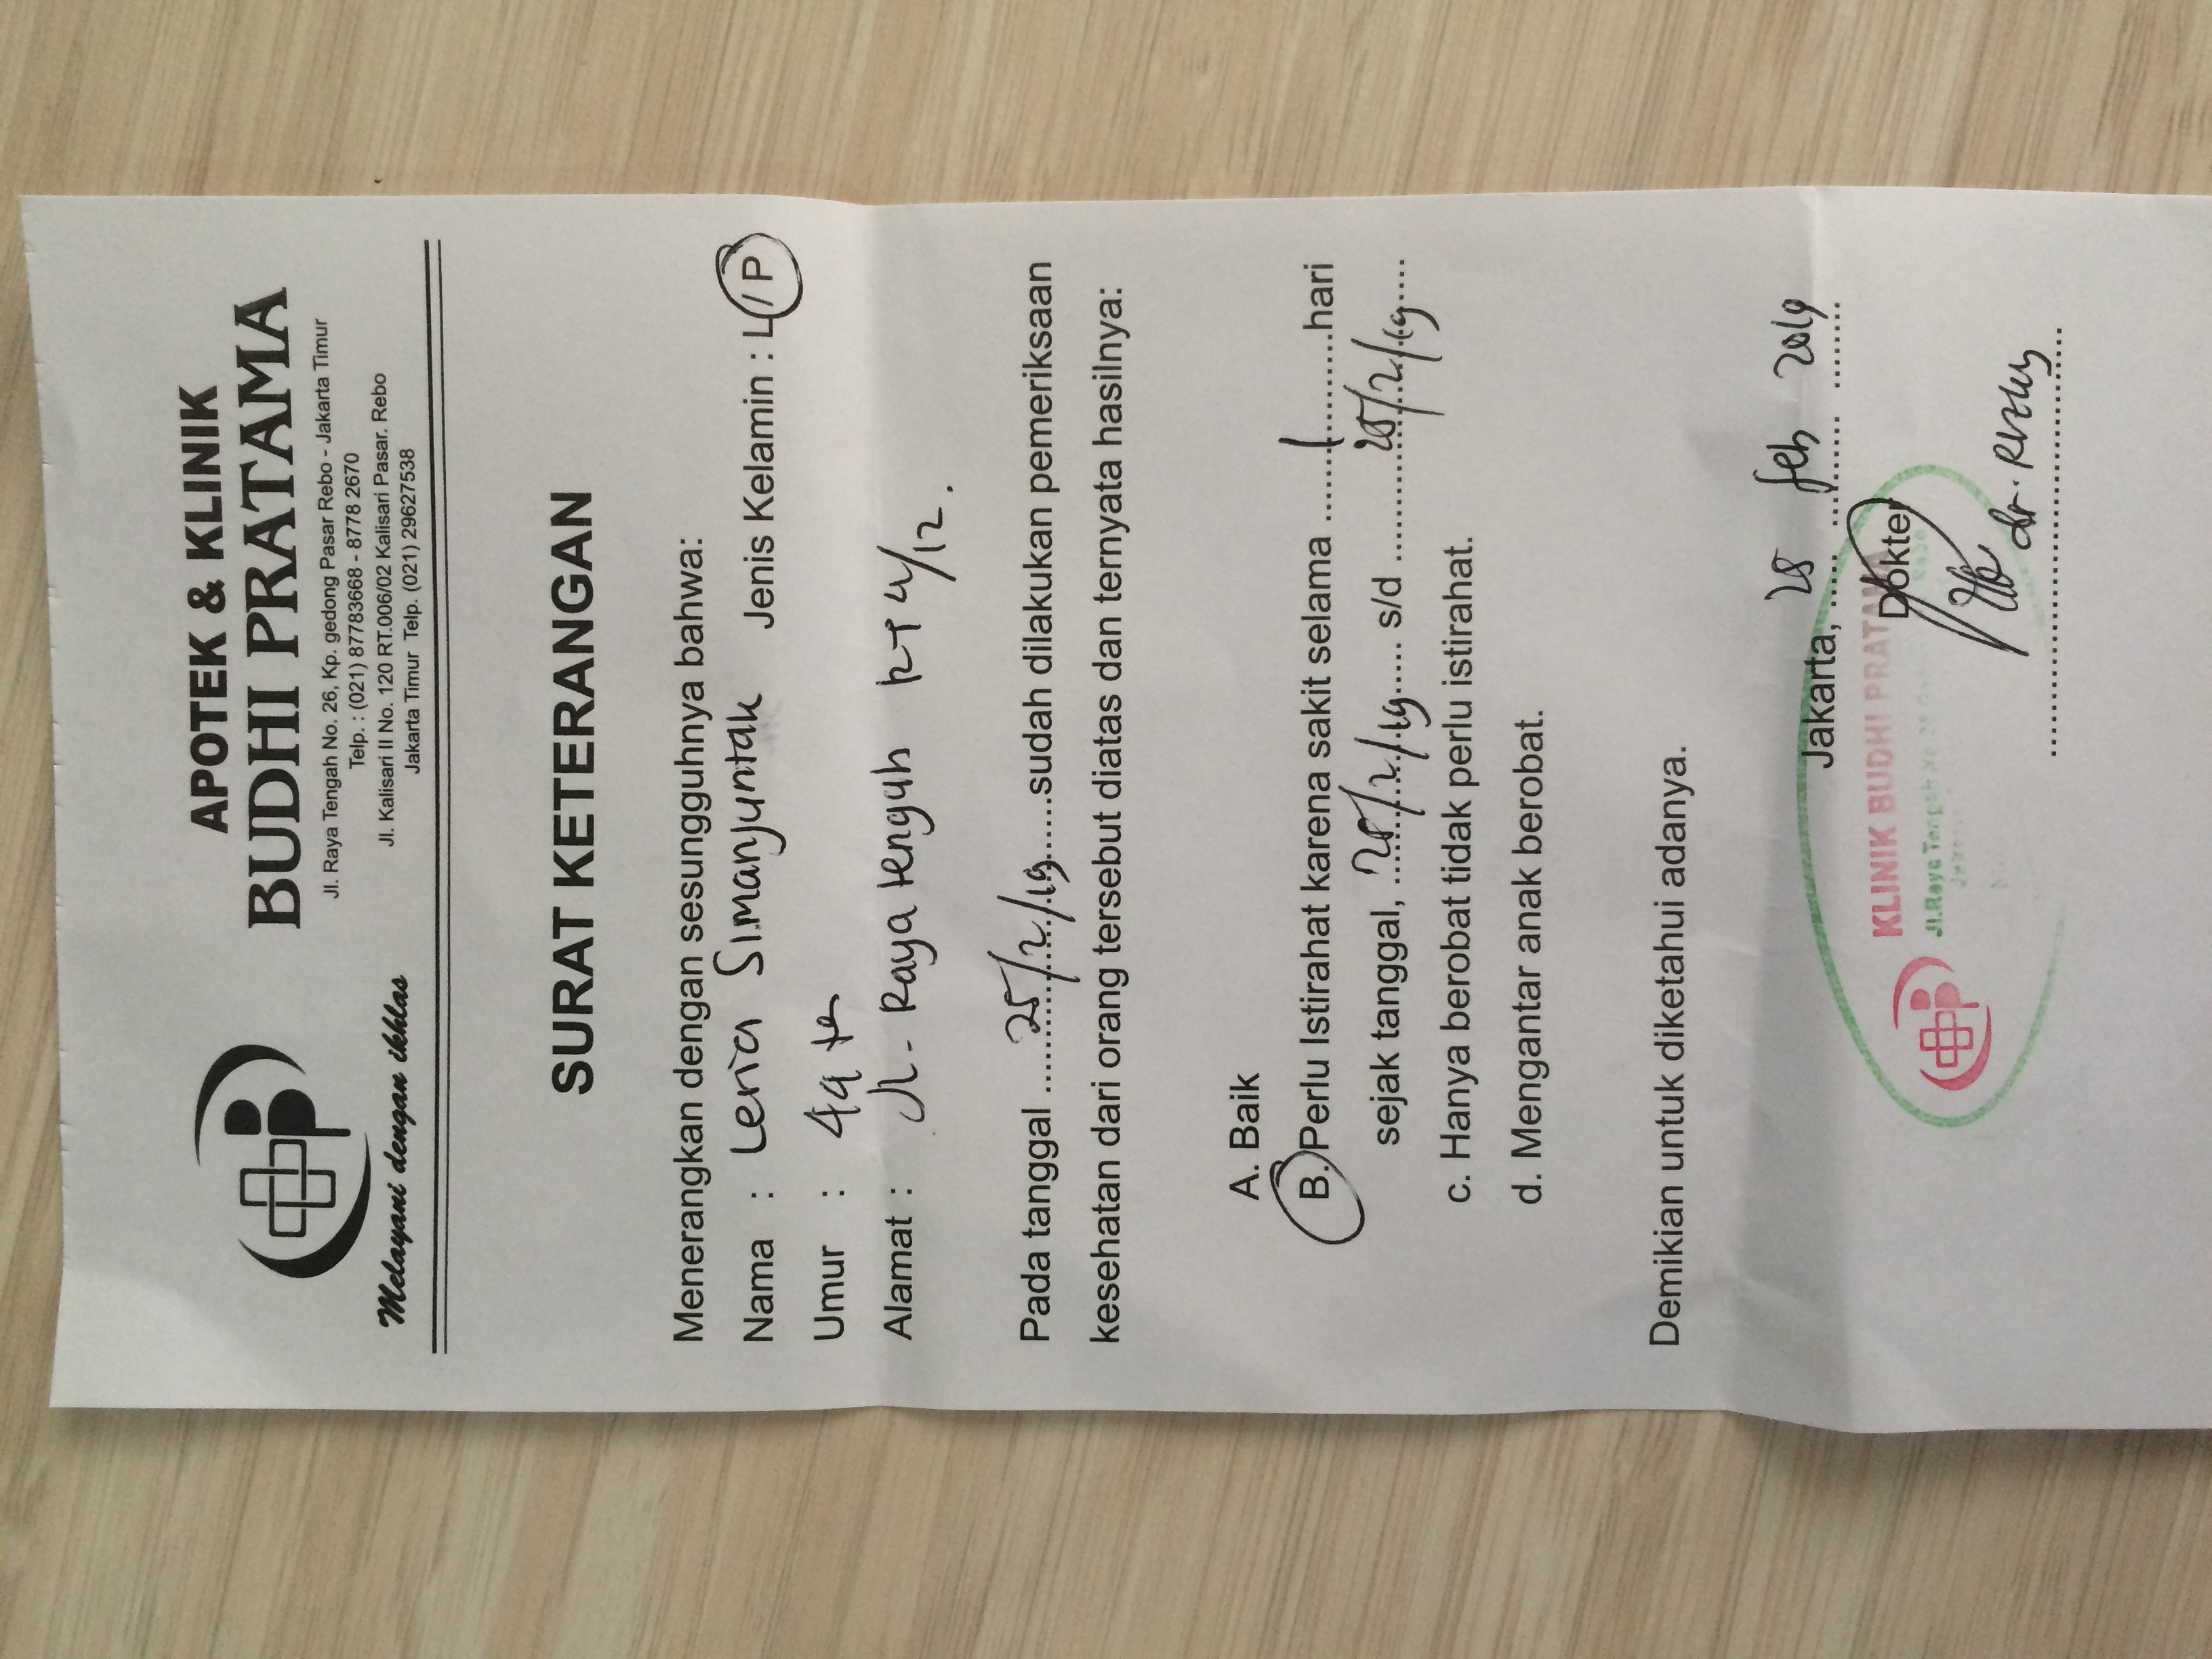 APOTEK & KLINIK
BUDHI PRATAMA
Jl. Raya Tengah No. 26, Kp. gedong Pasar Rebo - Jakarta Timur
Telp. : (021) 87783668 - 8778 2670
Jl. Kalisari II No. 120 RT.006/02 Kalisari Pasar. Rebo
Jakarta Timur Telp. (021) 29627538
Melayani dengan ikhlas
SURAT KETERANGAN
Menerangkan dengan sesungguhnya bahwa:
Nama : Leria Simanjuntak Jenis Kelamin : L / P
Umur : 49 th
Alamat : Jl. Raya tengah RT 4/12.
Pada tanggal ......25/2/19......sudah dilakukan pemeriksaan
kesehatan dari orang tersebut diatas dan ternyata hasilnya:
A. Baik
B. Perlu Istirahat karena sakit selama .......1..........hari
sejak tanggal, ...25/2/19..... s/d ..........25/2/19....
c. Hanya berobat tidak perlu istirahat.
d. Mengantar anak berobat.
Demikian untuk diketahui adanya.
Jakarta, 25 Feb 2019
KLINIK BUDHI PRATAMA
Jl.Raya Tengah
Dokter
dr. Rizky